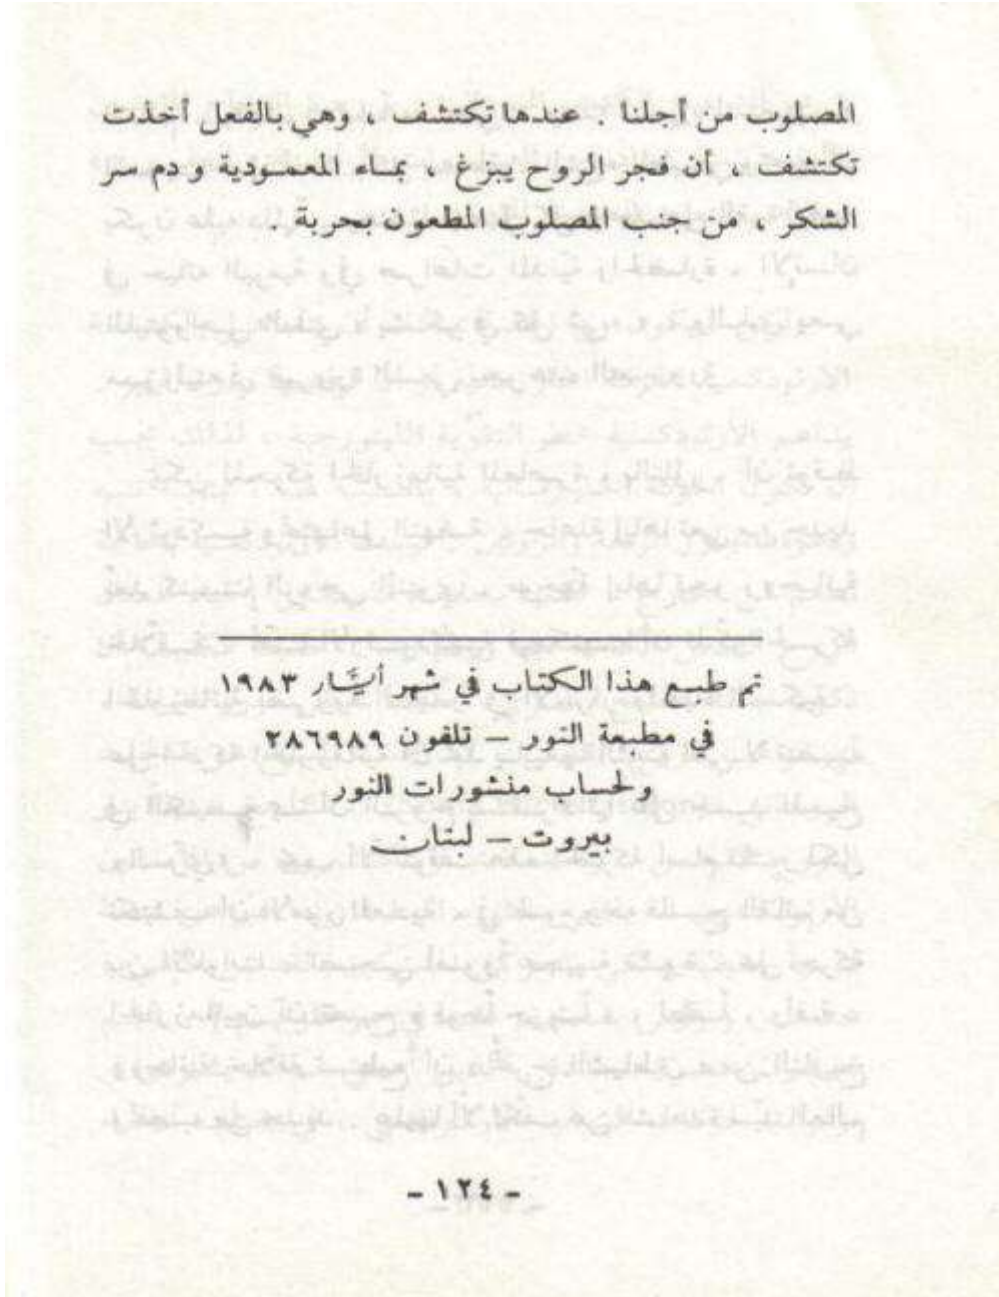 المصلوب من أجلنا . عندها تكتشف ، وهي بالفعل أخذت
تكتشف ، أن فجر الروح يبزغ ، بمـاء المعمـودية ودم سر
الشكر ، من جنب المصلوب المطعون بحربة .
تم طبـع هذا الكتاب في شهر أيَّـار ١٩٨٣
في مطبعة النور – تلفون ٢٨٦٩٨٩
ولحساب منشورات النور
بيروت – لبنان
- ١٢٤ -